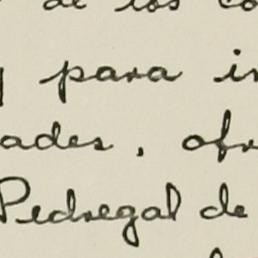 de los co
y para in
ades, ofr
Pedregal de